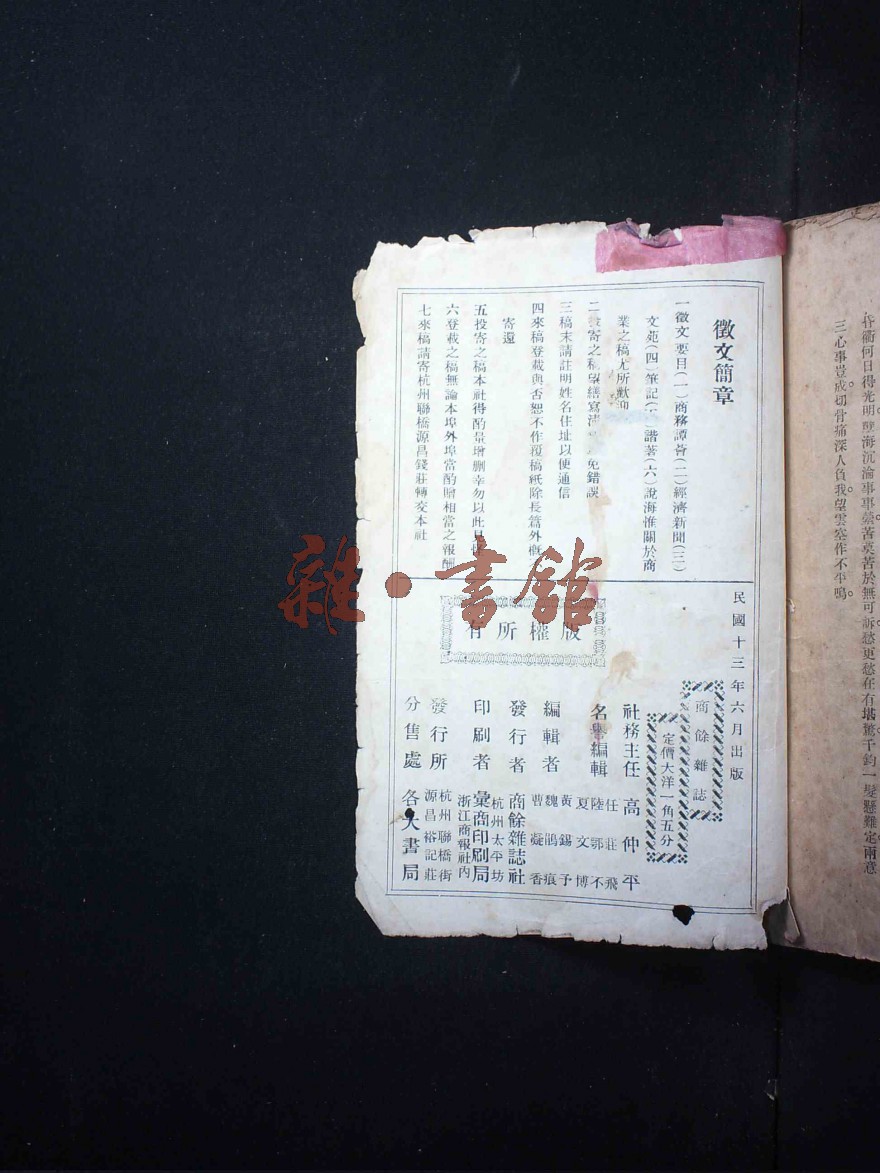 徵文簡章
一徵文要目(一)商務譚薈(二)經濟新聞(三)
文苑(四)筆記( )諧著(六)說海惟關於商
業之稿尤所歡迎
二投寄之稿望繕寫清 免錯誤
三稿末請註明姓名住址以便通信
四來稿登載與否恕不作覆稿紙除長篇外概
寄還
五投寄之稿本社得酌量增刪幸勿以此見
六登載之稿無論本埠外埠當酌贈相當之報酬
七來稿請寄杭州聯橋源昌錢莊轉交本社
民國十三年六月出版
商餘雜誌
定價大洋一角五分
版權所有
社務主任 高仲平
名譽編輯 任莊飛 陸鄂不 夏文博
編輯者 黃錫予 魏鵑痕 曹凝香
發行者 杭州太平坊 商餘雜誌社
印刷者 浙江商報社內 彙商印刷局
發行所 杭州聯橋街 源昌裕記莊
分售處 各大書局
雜·書館
衢何日得光明。孽海沉淪事事 苦莫苦於無可訴。愁更愁在有堪驚千鈞一髮懸難定兩意
三心事豈成。切骨痛深人負我。望雲空作不平鳴。